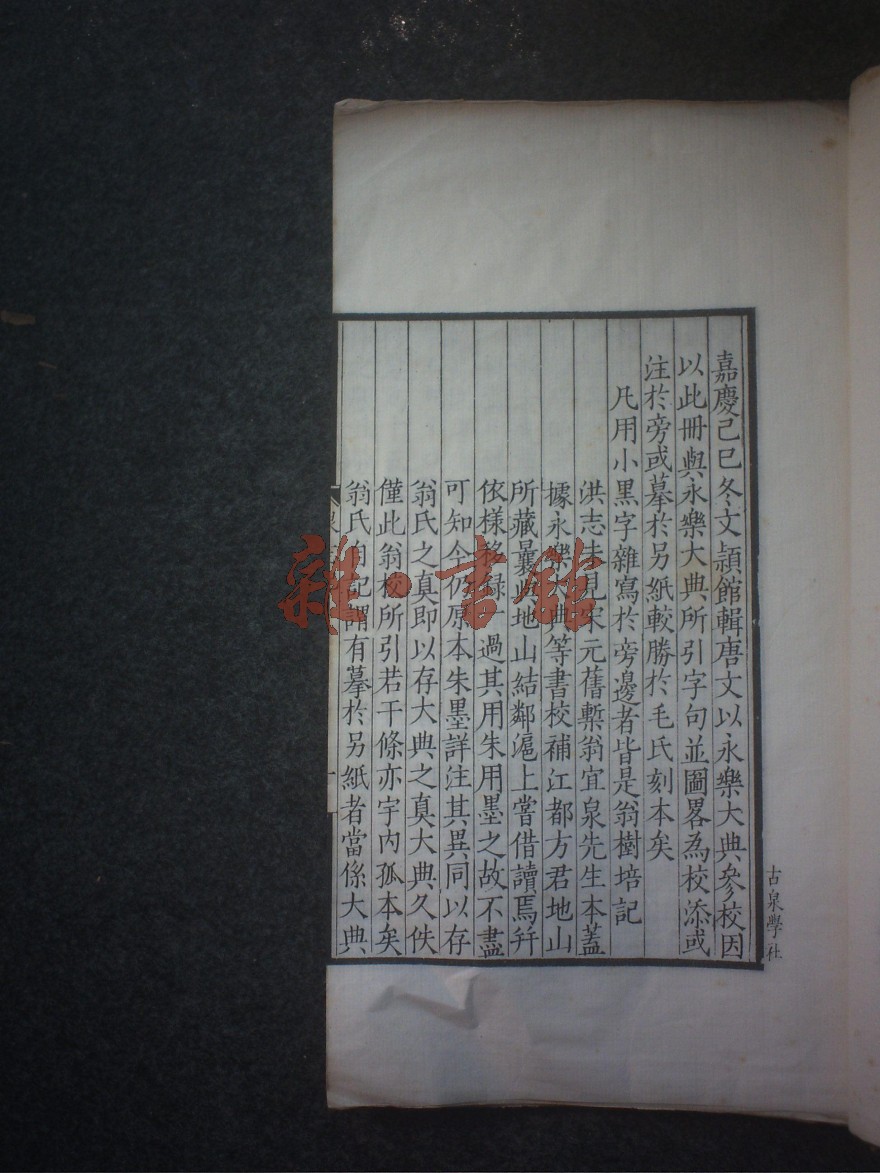 嘉慶己巳冬文頴館輯唐文以永樂大典參校因
以此冊與永樂大典所引字句並圖畧為校添或
注於旁或摹於另紙較勝於毛氏刻本矣
凡用小黑字雜寫於旁邊者皆是翁樹培記
洪志未見宋元舊槧翁宜泉先生本蓋
據永樂大典等書校補江都方君地山
所藏曩與地山結鄰滬上嘗借讀焉并
依樣移錄過其用朱用墨之故不盡
可知今仍原本朱墨詳注其異同以存
翁氏之真即以存大典之真大典久佚
僅此翁校所引若干條亦宇內孤本矣
翁氏自記謂有摹於另紙者當係大典
古泉學社
雜·書館